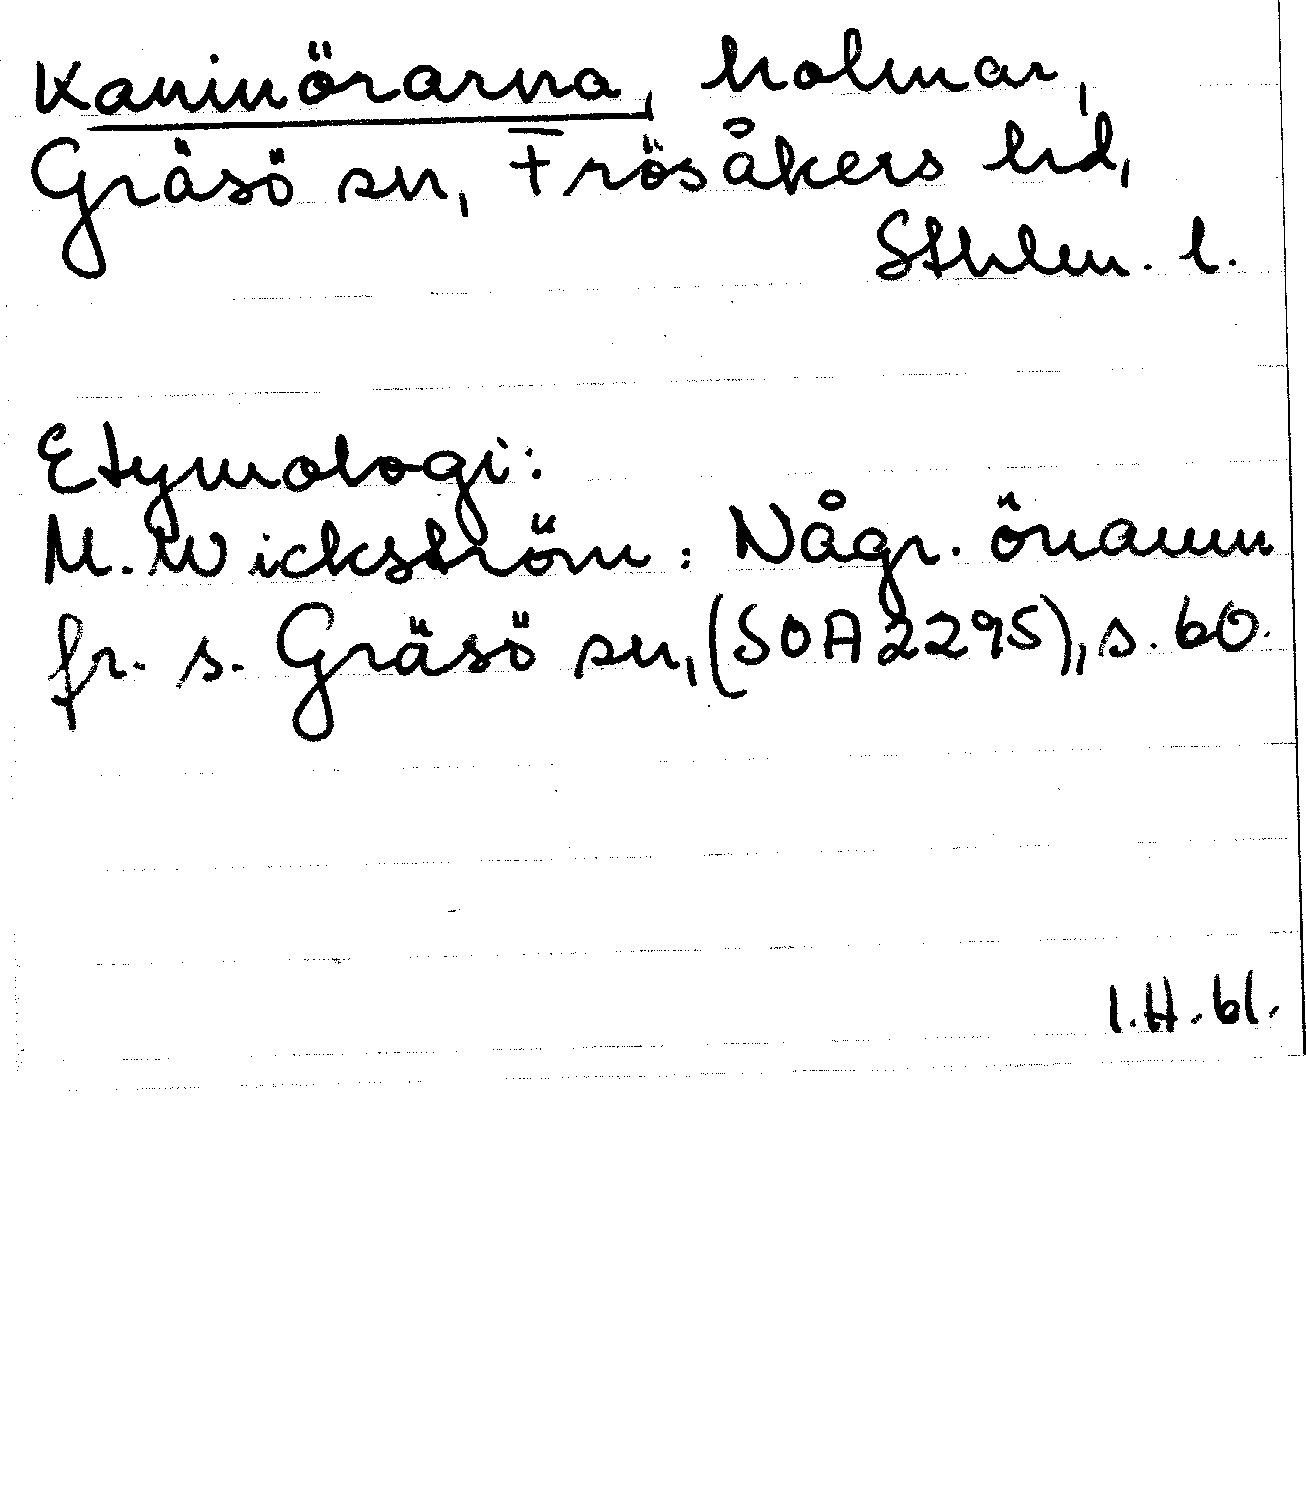 Kaninörarna, holmar,
Gräsö sn, Frösåkers hd,
Sthlm. l.
Etymologi:
M. Wickström: Någr. önamn
fr. s. Gräsö sn, (SOA 2295), s. 60.
I.H. 61.